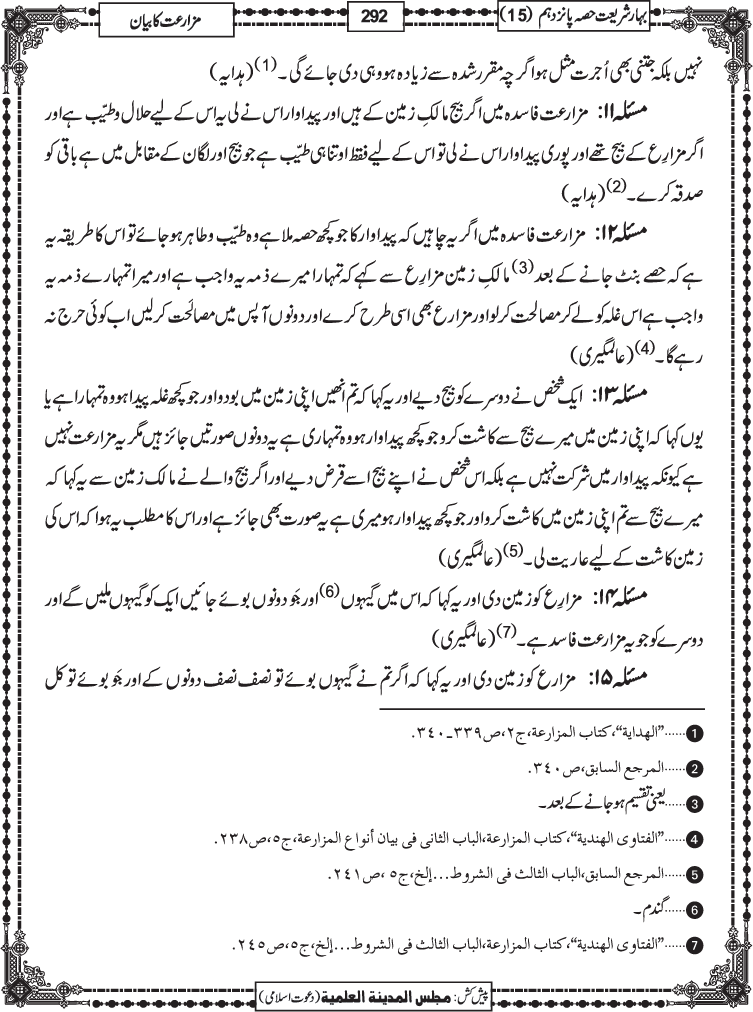 بہار شریعت حصہ پانزدہم (15)
292
مزارعت کا بیان
نہیں بلکہ جتنی بھی اُجرت مثل ہو اگرچہ مقرر شدہ سے زیادہ ہو وہی دی جائے گی۔(1) (ہدایہ)
مسئلہ ۱۱: مزارعت فاسدہ میں اگر بیج مالکِ زمین کے ہیں اور پیداوار اس نے لی یہ اس کے لیے حلال و طیّب ہے اور
اگر مزارِع کے بیج تھے اور پوری پیداوار اس نے لی تو اس کے لیے فقط اوتنا ہی طیّب ہے جو بیج اور لگان کے مقابل میں ہے باقی کو
صدقہ کرے۔(2) (ہدایہ)
مسئلہ ۱۲: مزارعت فاسدہ میں اگر یہ چاہیں کہ پیداوار کا جو کچھ حصہ ملا ہے وہ طیّب و طاہر ہو جائے تو اس کا طریقہ یہ
ہے کہ حصے بنٹ جانے کے بعد(3) مالکِ زمین مزارِع سے کہے کہ تمہارا میرے ذمہ یہ واجب ہے اور میرا تمہارے ذمہ یہ
واجب ہے اس غلہ کو لے کر مصالحت کر لو اور مزارِع بھی اسی طرح کرے اور دونوں آپس میں مصالَحت کر لیں اب کوئی حرج نہ
رہے گا۔(4) (عالمگیری)
مسئلہ ۱۳: ایک شخص نے دوسرے کو بیج دیے اور یہ کہا کہ تم انھیں اپنی زمین میں بو دو اور جو کچھ غلہ پیدا ہو وہ تمہارا ہے یا
یوں کہا کہ اپنی زمین میں میرے بیج سے کاشت کرو جو کچھ پیداوار ہو وہ تمہاری ہے یہ دونوں صورتیں جائز ہیں مگر یہ مزارعت نہیں
ہے کیونکہ پیداوار میں شرکت نہیں ہے بلکہ اس شخص نے اپنے بیج اسے قرض دیے اور اگر بیج والے نے مالک زمین سے یہ کہا کہ
میرے بیج سے تم اپنی زمین میں کاشت کرو اور جو کچھ پیداوار ہو میری ہے یہ صورت بھی جائز ہے اور اس کا مطلب یہ ہوا کہ اس کی
زمین کاشت کے لیے عاریت لی۔(5) (عالمگیری)
مسئلہ ۱۴: مزارِع کو زمین دی اور یہ کہا کہ اس میں گیہوں(6) اور جَو دونوں بوئے جائیں ایک کو گیہوں ملیں گے اور
دوسرے کو جو یہ مزارعت فاسد ہے۔(7) (عالمگیری)
مسئلہ ۱۵: مزارع کو زمین دی اور یہ کہا کہ اگر تم نے گیہوں بوئے تو نصف نصف دونوں کے اور جَو بوئے تو کل
1......”الهداية“، كتاب المزارعة، ج۲، ص۳۳۹ـ۳۴۰.
2......المرجع السابق، ص۳۴۰.
3......یعنی تقسیم ہو جانے کے بعد۔
4......”الفتاوى الهندية“، كتاب المزارعة، الباب الثانی فی بيان أنواع المزارعة، ج۵، ص۲۳۸.
5......المرجع السابق، الباب الثالث فی الشروط...إلخ، ج۵، ص۲۴۱.
6......گندم۔
7......”الفتاوى الهندية“، كتاب المزارعة، الباب الثالث فی الشروط...إلخ، ج۵، ص۲۴۵.
پیش کش: مجلس المدينة العلمية (دعوت اسلامی)